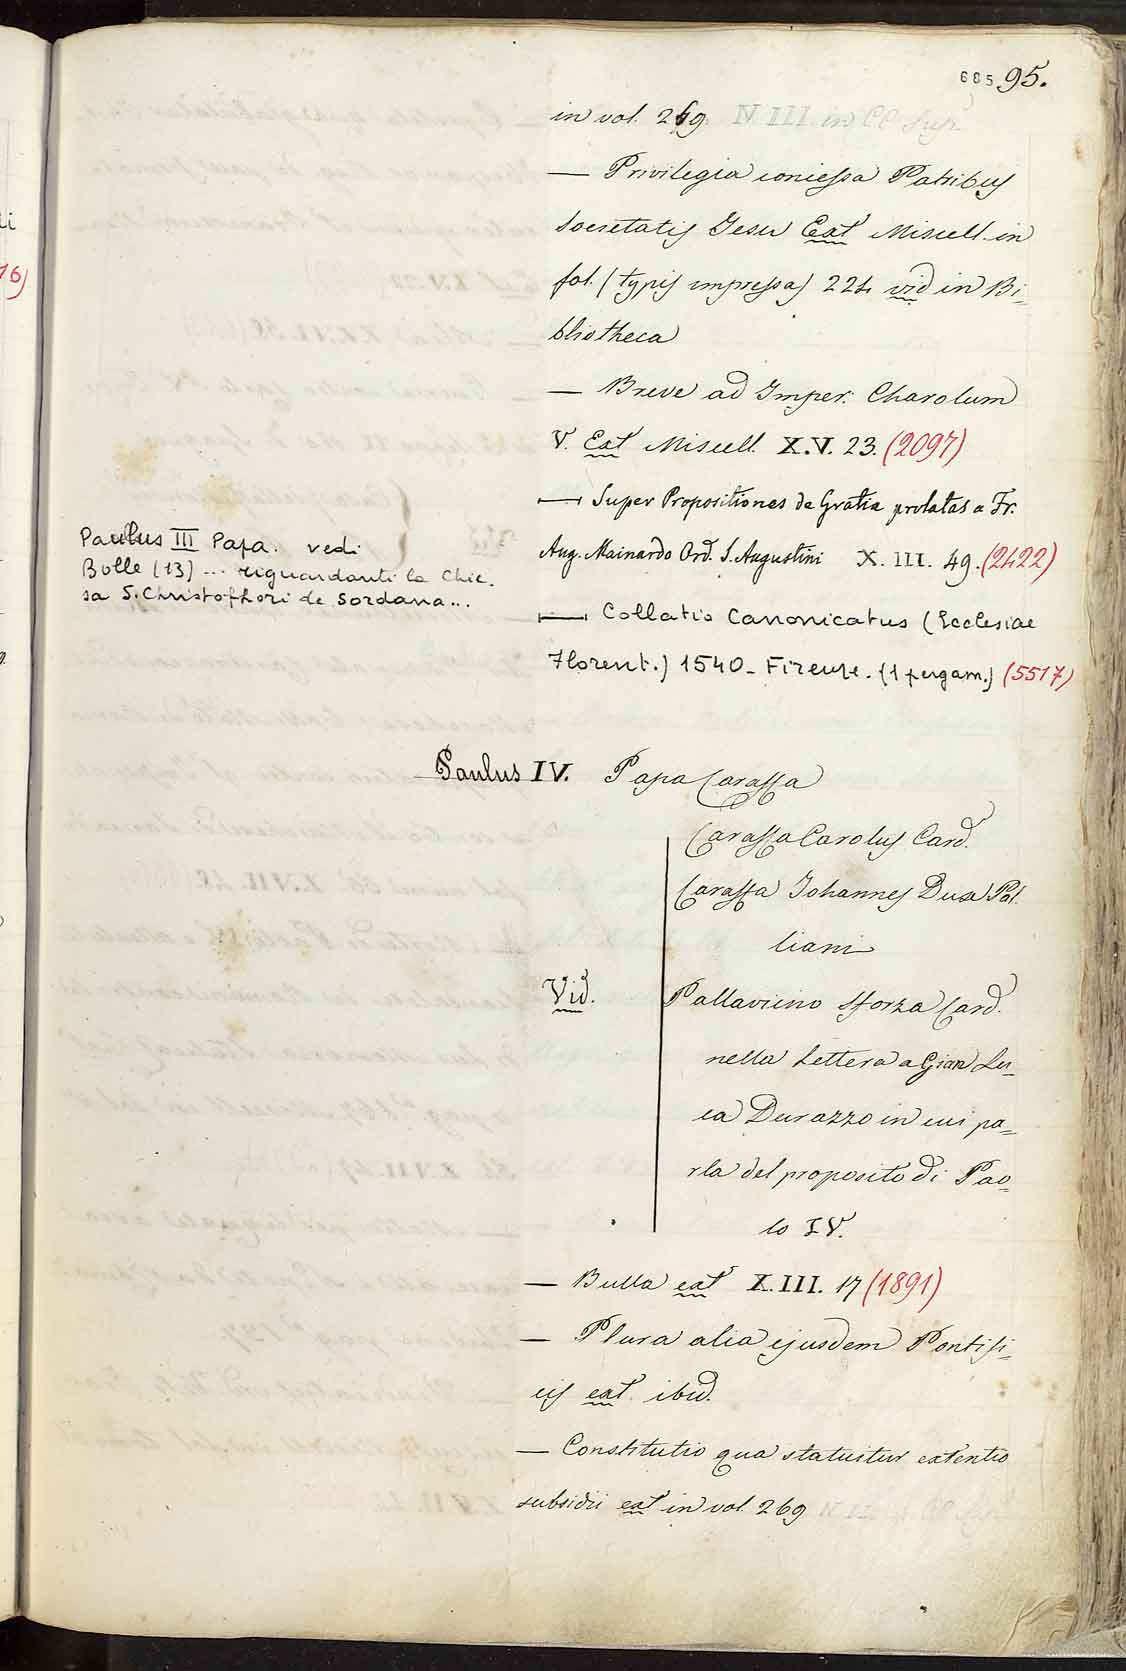 685 95.
in vol. 269. N. III. in CC. Sup.
— Privilegia concessa Patribus
Societatis Jesu Ext Miscell. in
fol. (typis impressa) 224 vid in Bi=
bliotheca
— Breve ad Imper. Charolum
V. Ext Miscell. X.V. 23. (2097)
— Super Propositiones de Gratia prolatas a Fr.
Aug. Mainardo Ord. S. Augustini X. III. 49. (2422)
Paulus III Papa. vedi
Bolle (13) ... riguardanti la Chie.
sa S. Christophori de Sordana...
— Collatio Canonicatus (Ecclesiae
Florent.) 1540 - Firenze. (1 pergam.) (5517)
Paulus IV. Papa Caraffa
Caraffa Carolus Card.
Caraffa Johannes Dux Pal.
liani
Vid. Pallavicino Sforza Card.
nella Lettera a Gian Lu=
ca Durazzo in cui pa=
rla del proposito di Pao=
lo IV.
— Bulla ext X. III. 17 (1891)
— Plura alia ejusdem Pontifi=
cis ext. ibid.
— Constitutio qua statuitur extentio
subsidii ext in vol. 269